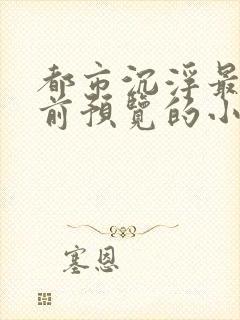 都市沉浮最
前预览的小
塞恩